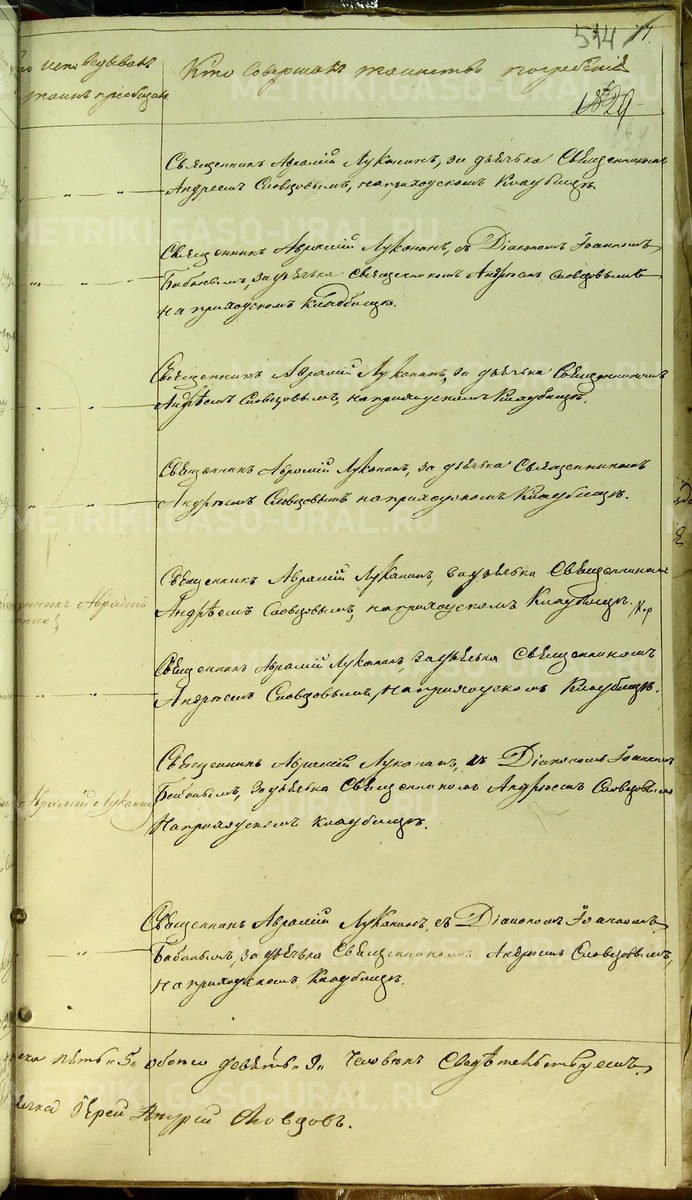 514 77.
Кто исповедывал Кто совершал таинство погребения
и таин приобщал
1829
Священник Аврамий Луканин, за дьячка Священником
„ „ „ Андреем Словцовым, на приходском кладбище.
Священник Аврамий Луканин, с Диаконом Иоанном
Бабиным, за дьячка священником Андреем Словцовым
на приходском кладбище.
Священник Аврамий Луканин, за дьячка Священником
Андреем Словцовым, на приходском кладбище.
Священник Аврамий Луканин, за дьячка Священником
Андреем Словцовым на приходском кладбище.
Священник Аврамий Луканин, за дьячка Священником
Аврамий Андреем Словцовым, на приходском кладбище.
Священник Аврамий Луканин, за дьячка Священником
Андреем Словцовым, на приходском кладбище.
Священник Аврамий Луканин, с Диаконом Иоанном
Аврамий Луканин Бабиным, за дьячка Священником Андреем Словцовым
на приходском кладбище.
Священник Аврамий Луканин, с Диаконом Иоанном
Бабиным, за дьячка Священником Андреем Словцовым,
на приходском кладбище.
пять „5„ обоего девять „9„ человек Свидетельствуем
Иерей Андрей Словцов.
METRIKI.GASO-URAL.RU